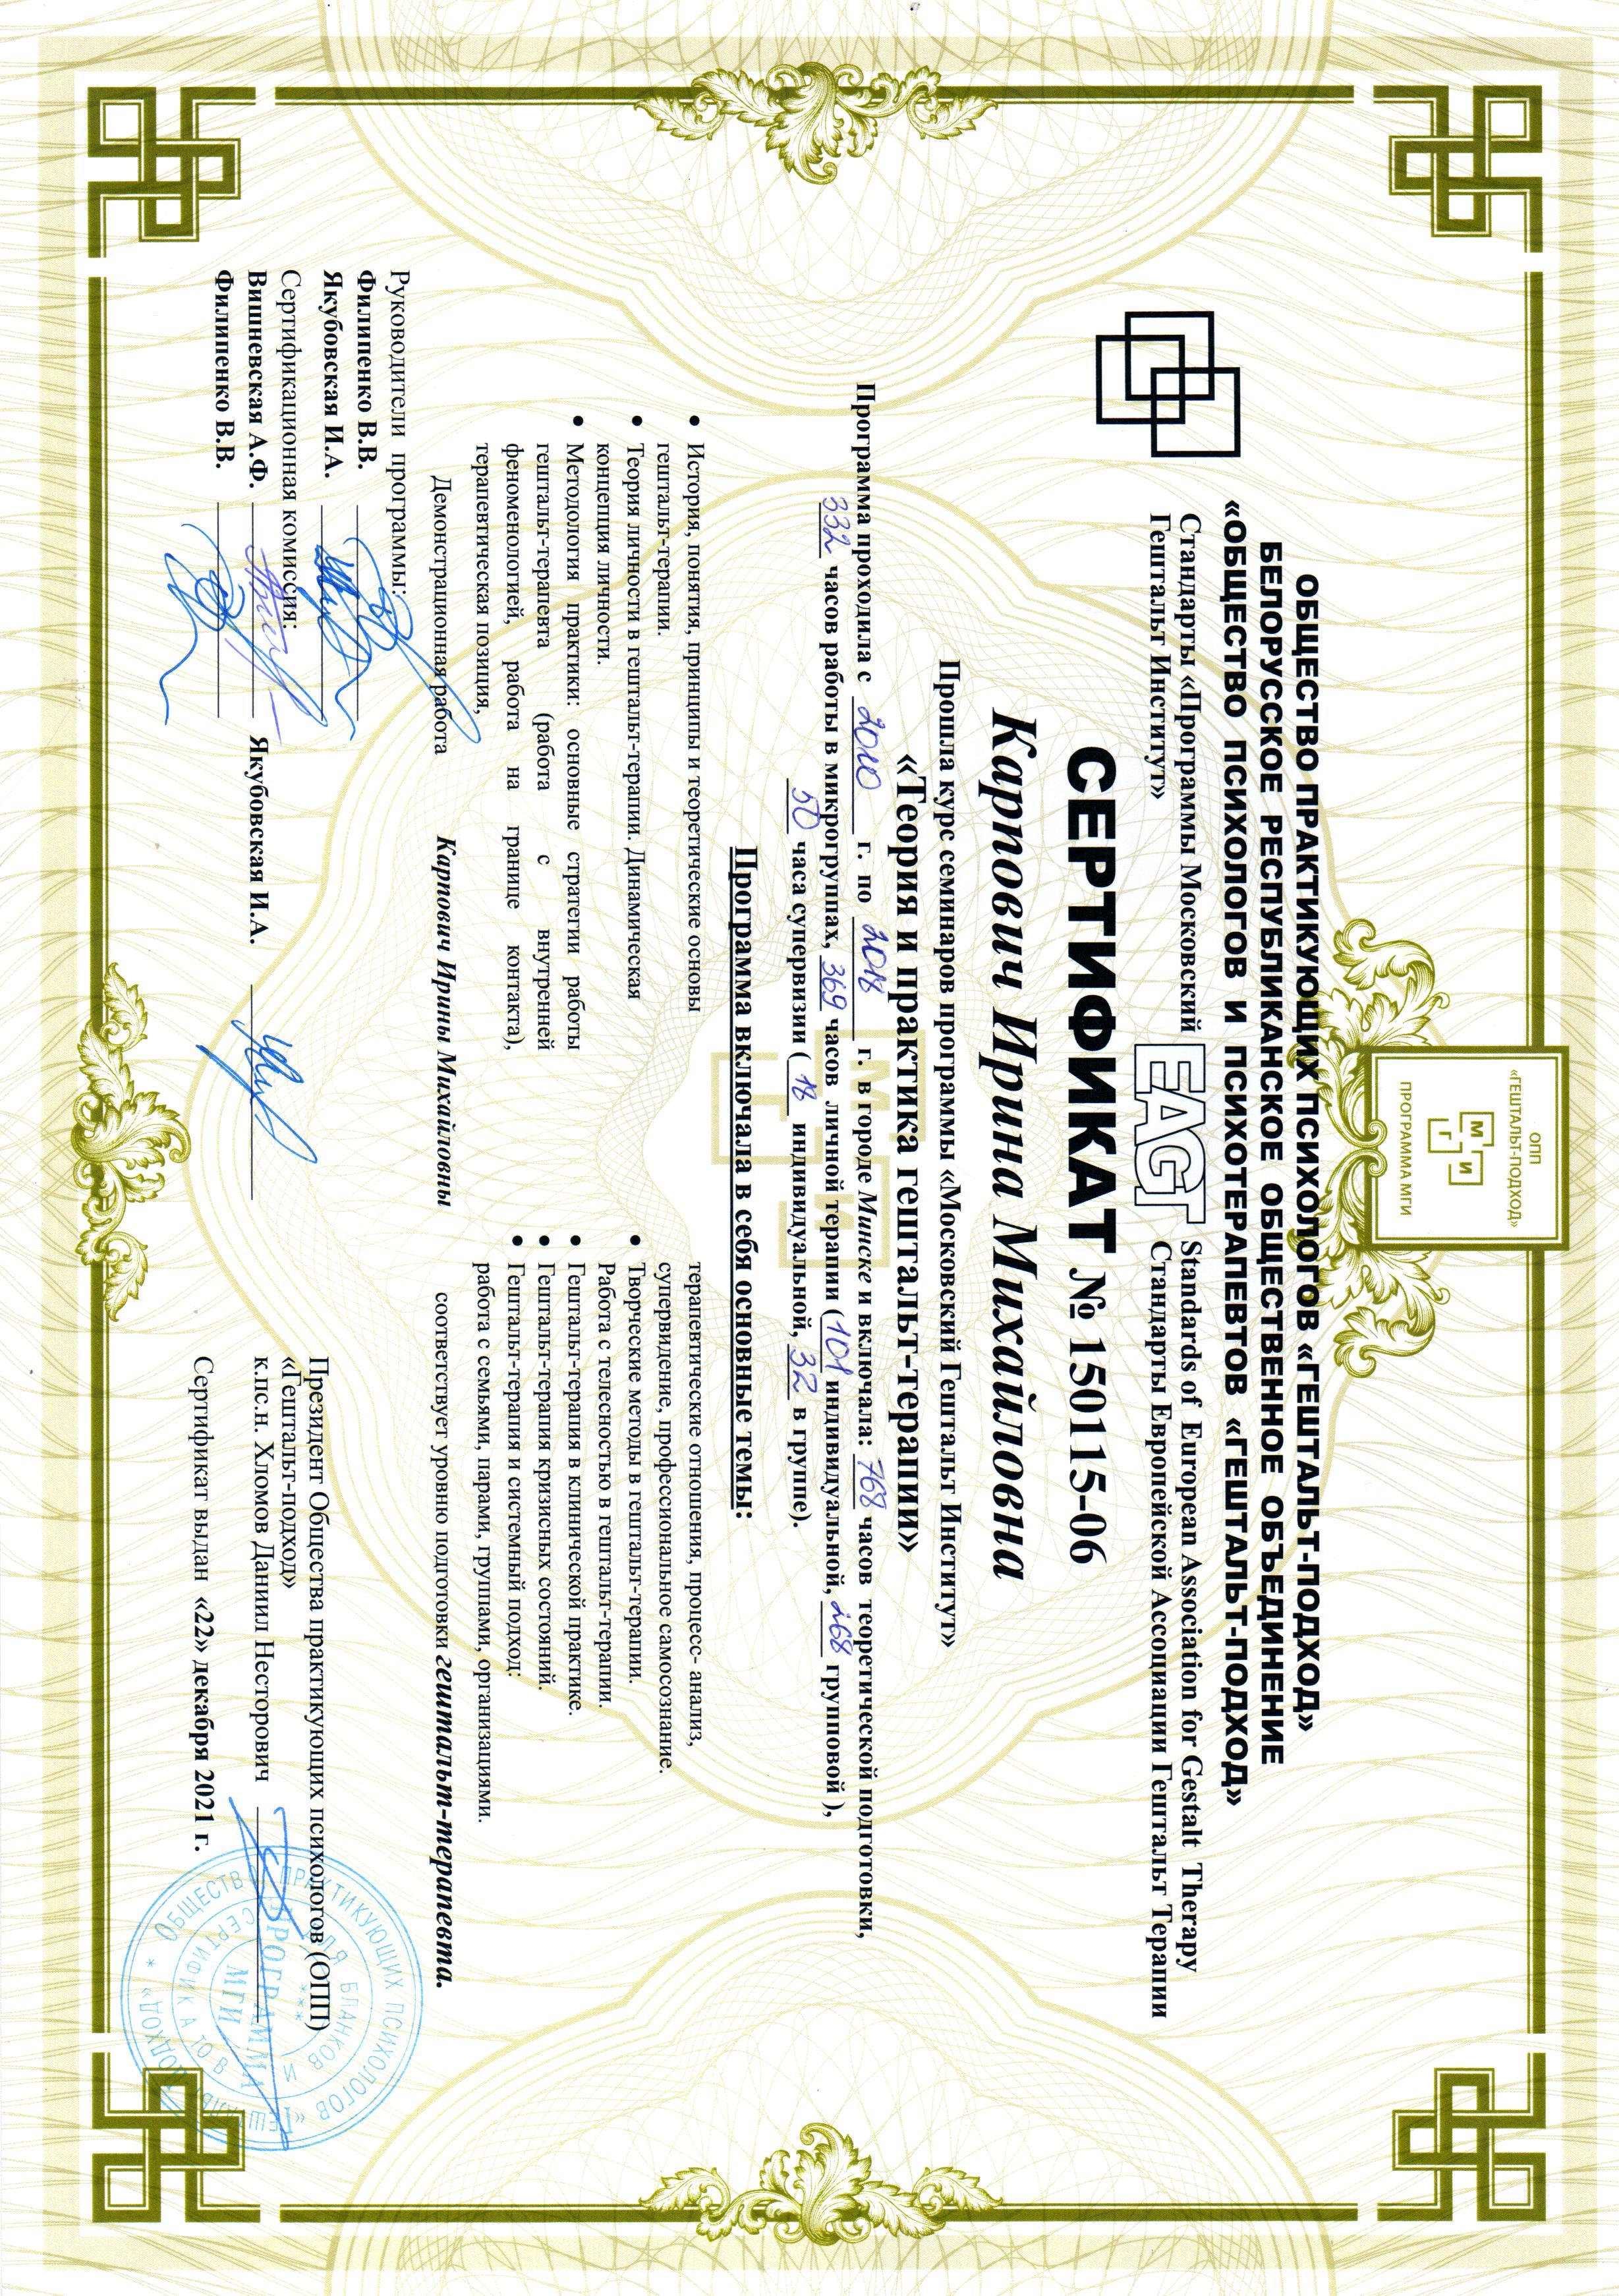 ОПП
«ГЕШТАЛЬТ-ПОДХОД»
М
И
Г
ПРОГРАММА МГИ
ОБЩЕСТВО ПРАКТИКУЮЩИХ ПСИХОЛОГОВ «ГЕШТАЛЬТ-ПОДХОД»
БЕЛОРУССКОЕ РЕСПУБЛИКАНСКОЕ ОБЩЕСТВЕННОЕ ОБЪЕДИНЕНИЕ
«ОБЩЕСТВО ПСИХОЛОГОВ И ПСИХОТЕРАПЕВТОВ «ГЕШТАЛЬТ-ПОДХОД»
Стандарты «Программы Московский
Гештальт Институт»
EAGT
Standards of European Association for Gestalt Therapy
Стандарты Европейской Ассоциации Гештальт Терапии
СЕРТИФИКАТ № 150115-06
Карпович Ирина Михайловна
Прошла курс семинаров программы «Московский Гештальт Институт»
«Теория и практика гештальт-терапии»
Программа проходила с 2010 г. по 2018 г. в городе Минске и включала: 768 часов теоретической подготовки,
332 часов работы в микрогруппах, 369 часов личной терапии (101 индивидуальной, 268 групповой ),
50 часа супервизии ( 18 индивидуальной, 32 в группе).
Программа включала в себя основные темы:
• История, понятия, принципы и теоретические основы
гештальт-терапии.
• Теория личности в гештальт-терапии. Динамическая
концепция личности.
• Методология практики: основные стратегии работы
гештальт-терапевта (работа с внутренней
феноменологией, работа на границе контакта),
терапевтическая позиция,
терапевтические отношения, процесс- анализ,
супервидение, профессиональное самосознание.
• Творческие методы в гештальт-терапии.
Работа с телесностью в гештальт-терапии.
• Гештальт-терапия в клинической практике.
• Гештальт-терапия кризисных состояний.
• Гештальт-терапия и системный подход:
работа с семьями, парами, группами, организациями.
Демонстрационная работа Карпович Ирины Михайловны соответствует уровню подготовки гештальт-терапевта.
Руководители программы:
Филипенко В.В.
Якубовская И.А.
Сертификационная комиссия:
Вишневская А.Ф. Якубовская И.А.
Филипенко В.В.
Президент Общества практикующих психологов (ОПП)
«Гештальт-подход»
к.пс.н. Хломов Даниил Несторович
Сертификат выдан «22» декабря 2021 г.
ОБЩЕСТВО ПРАКТИКУЮЩИХ ПСИХОЛОГОВ «ГЕШТАЛЬТ-ПОДХОД» *
ДЛЯ БЛАНКОВ И СЕРТИФИКАТОВ
***
ПРОГРАММА
МГИ